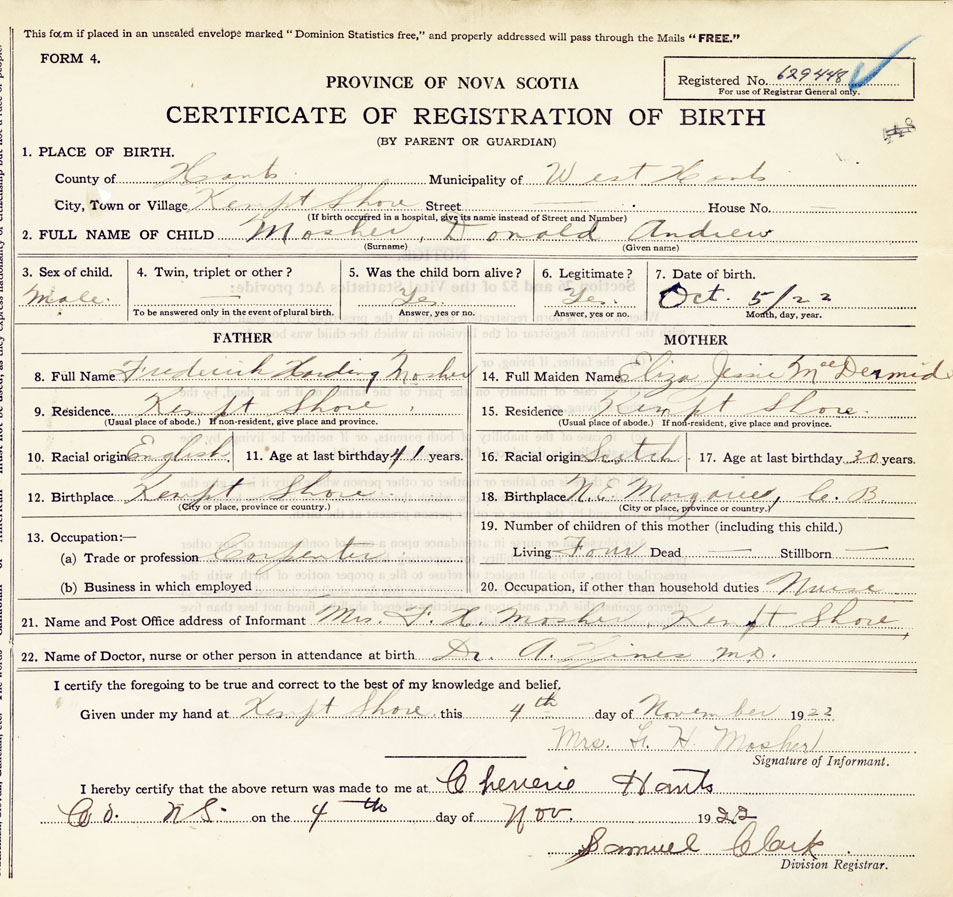 This form if placed in an unsealed envelope marked "Dominion Statistics free," and properly addressed will pass through the Mails "FREE."
FORM 4.
Registered No. 629448
For use of Registrar General only.
PROVINCE OF NOVA SCOTIA
CERTIFICATE OF REGISTRATION OF BIRTH
(BY PARENT OR GUARDIAN)
1. PLACE OF BIRTH.
County of Hants Municipality of West Hants
City, Town or Village Kempt Shore Street — House No. —
(If birth occurred in a hospital, give its name instead of Street and Number)
2. FULL NAME OF CHILD Mosher, Donald Andrew
(Surname) (Given name)
3. Sex of child. 4. Twin, triplet or other? 5. Was the child born alive? 6. Legitimate? 7. Date of birth.
Male. — Yes. Yes. Oct. 5/22
To be answered only in the event of plural birth. Answer, yes or no. Answer, yes or no. Month, day, year.
FATHER MOTHER
8. Full Name Frederick Harding Mosher 14. Full Maiden Name Eliza Jessie MacDermid
9. Residence. Kempt Shore 15. Residence Kempt Shore.
(Usual place of abode.) If non-resident, give place and province. (Usual place of abode.) If non-resident, give place and province.
10. Racial origin English 11. Age at last birthday 41 years. 16. Racial origin Scotch 17. Age at last birthday 30 years.
12. Birthplace Kempt Shore 18. Birthplace N.E. Margaree, C. B.
(City or place, province or country.) (City or place, province or country.)
19. Number of children of this mother (including this child.)
13. Occupation:—
(a) Trade or profession Carpenter Living Four Dead — Stillborn —
(b) Business in which employed 20. Occupation, if other than household duties Nurse
21. Name and Post Office address of Informant Mrs. F. H. Mosher, Kempt Shore,
22. Name of Doctor, nurse or other person in attendance at birth Dr. A. M.D.
I certify the foregoing to be true and correct to the best of my knowledge and belief.
Given under my hand at Kempt Shore. this 4th day of November 1922
Mrs. F. H. Mosher
Signature of Informant.
I hereby certify that the above return was made to me at Cheverie Hants
Co. N.S. on the 4th day of Nov. 1922
Samuel Clark
Division Registrar.